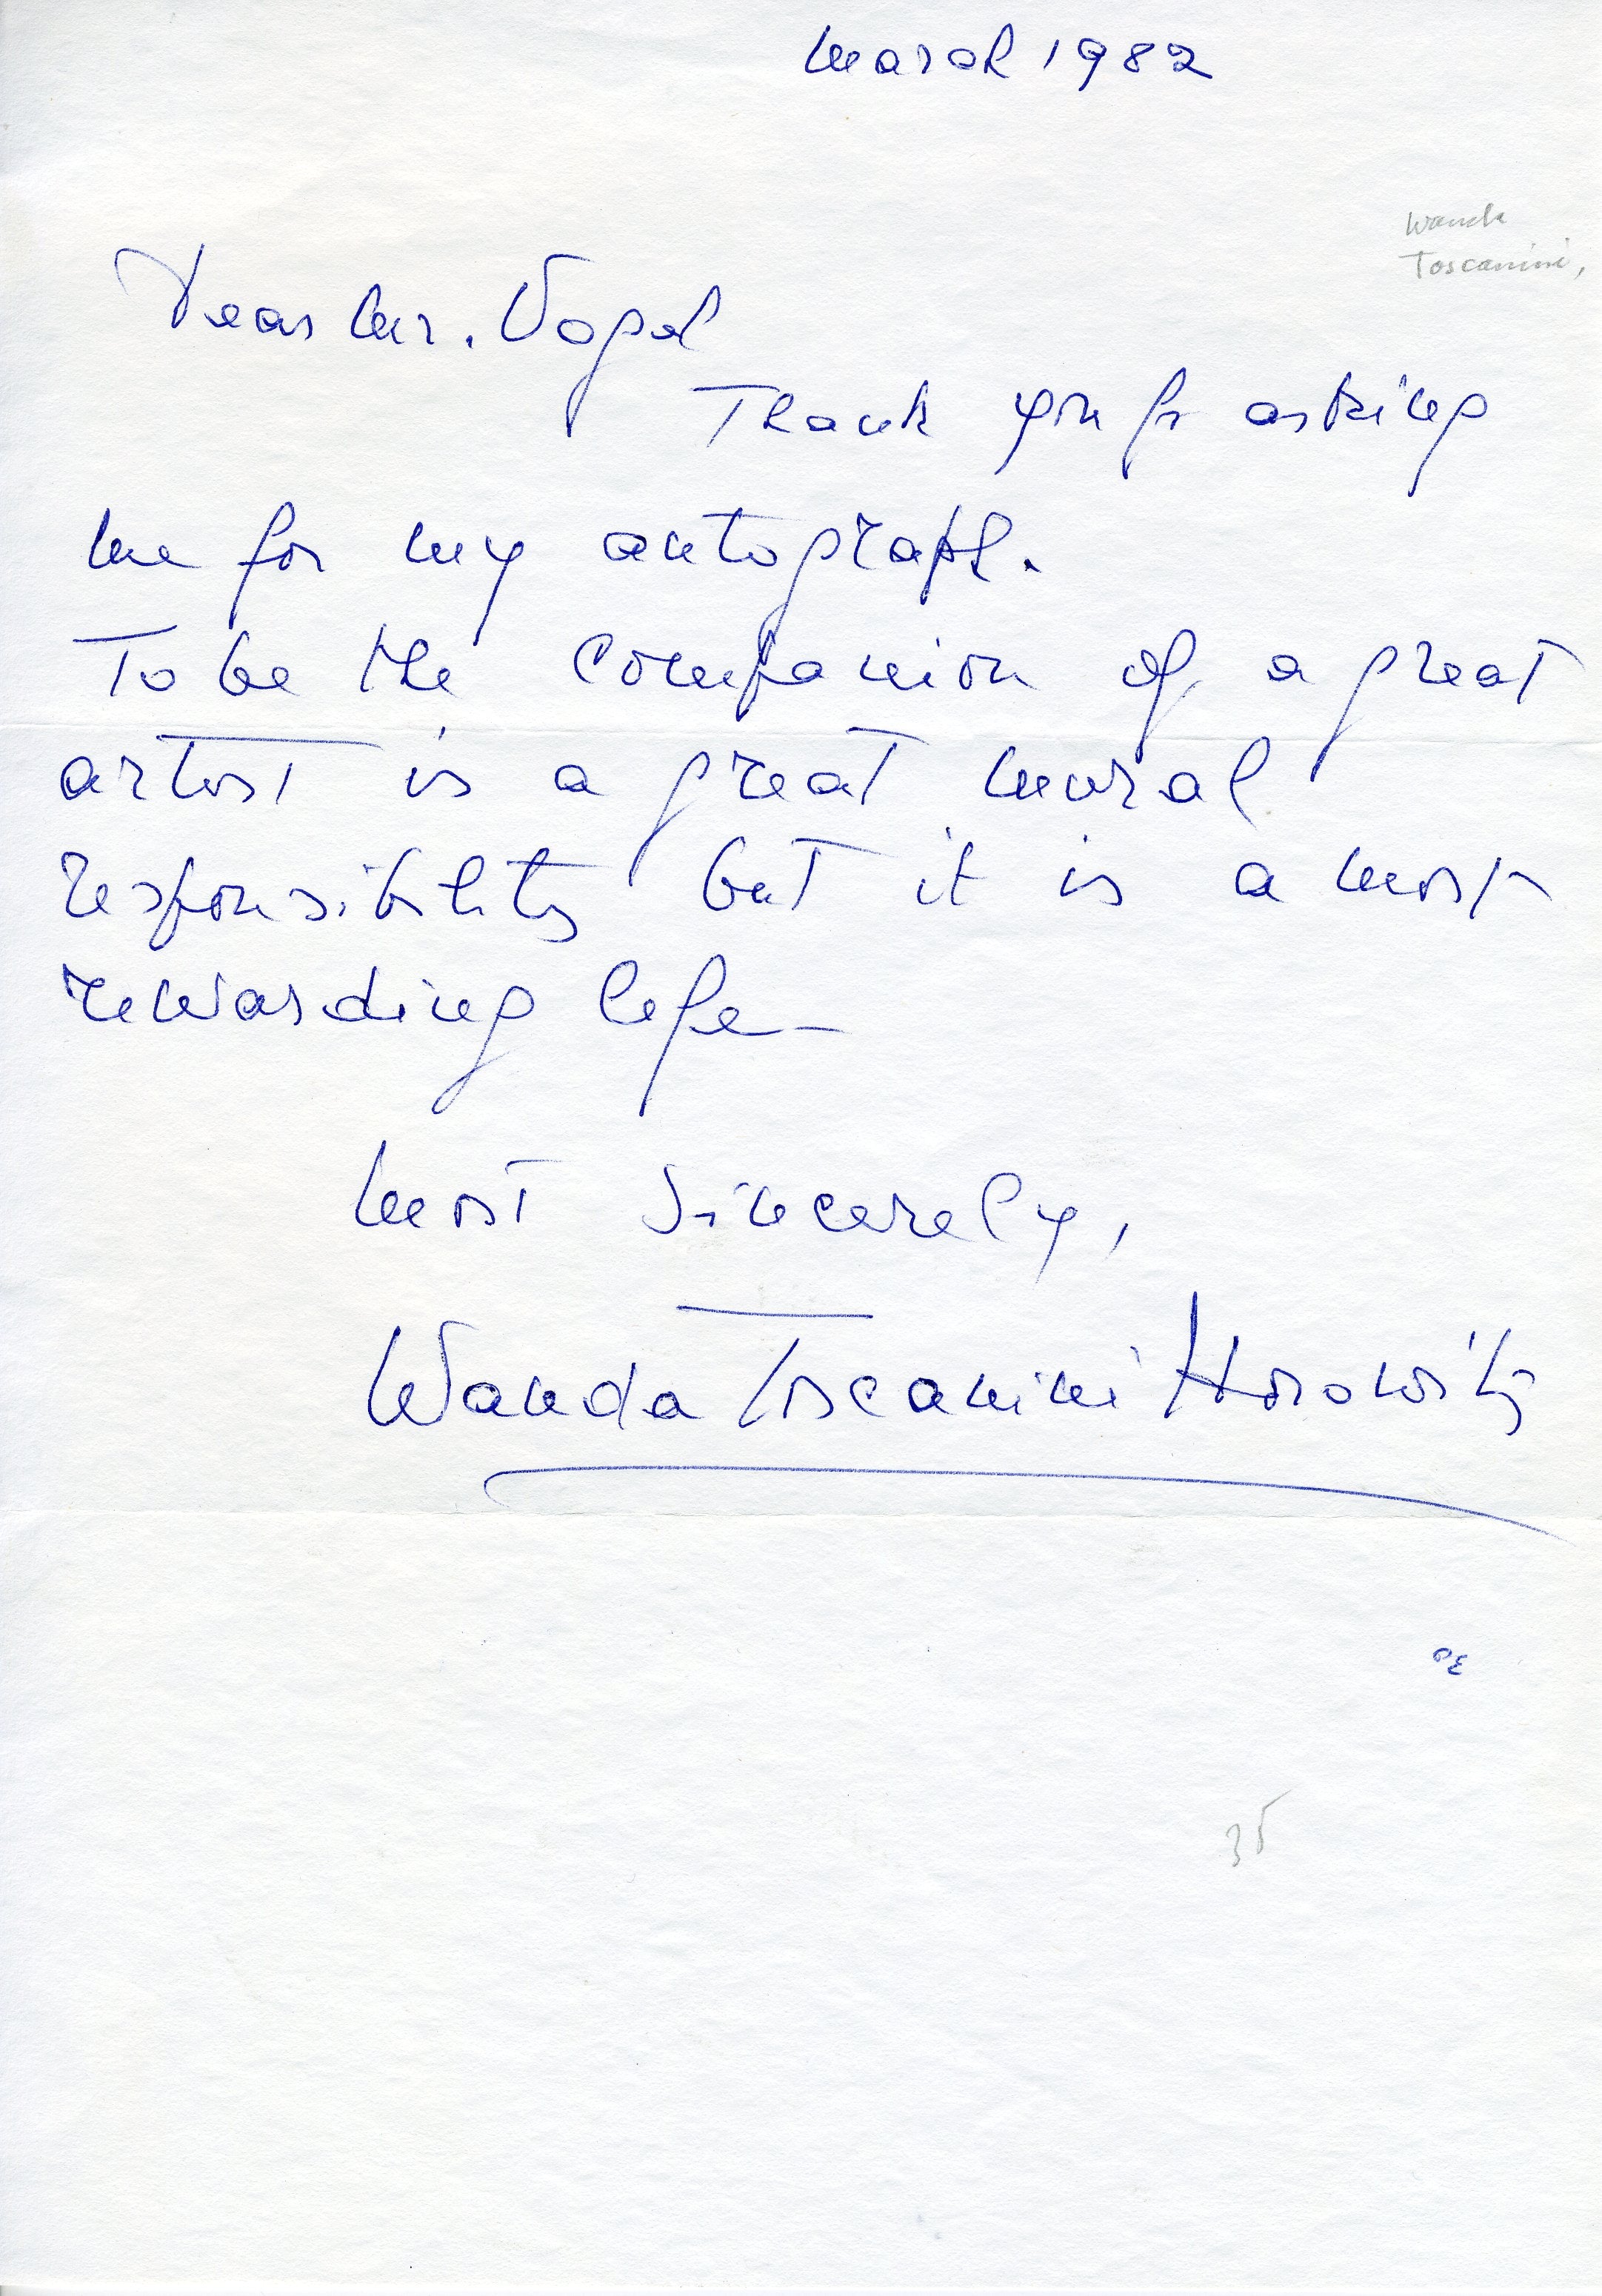 March 1982
Wanda
Toscanini,
Dear Mr. Vogel
Thank you for asking
me for my autograph.
To be the companion of a great
artist is a great moral
responsibility but it is a most
rewarding life—
Most Sincerely,
Wanda Toscanini Horowitz
30
35